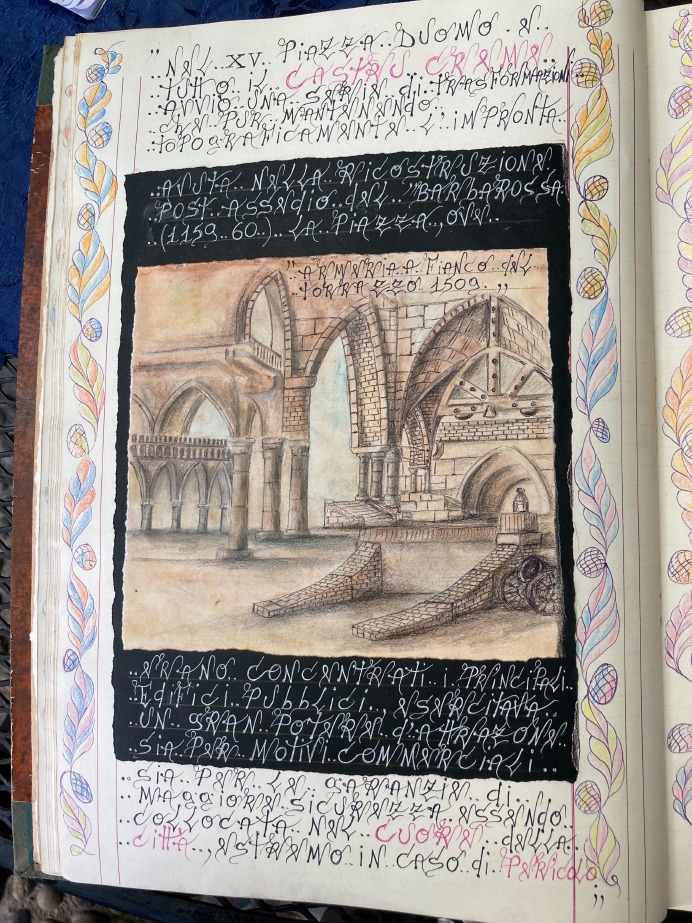 " NEL XV PIAZZA DUOMO E..
.. TUTTO IL CASTRUM CREMAE..
.. AVVIO UNA SERIE di TRASFORMAZIONI..
.. CHE PUR MANTENENDO
.. TOPOGRAFICAMENTE L'IMPRONTA..
.. AVUTA NELLA RICOSTRUZIONE..
.. POST ASSEDIO dEL "BARBAROSSA..
..(1159..60..).. LA PIAZZA.., OVE..
" ARMERIA.. A FIANCO dEL..
.. TORRAZZO 1509.. "
.. ERANO CONCENTRATI i PRINCIPALI..
.. Edifici Pubblici.., ESERCITAVA..
.. UN GRAN POTERE d'ATTRAZIONE
.. Sia PER MOTIVI COMMERCIALI..
.. Sia PER LE GARANZIE di..
.. MAGGIORE SICUREZZA ESSENDO..
.. COLLOCATA NEL CUORE dELLA..
.. città.., ESTREMO IN CASO di PERicolo
"